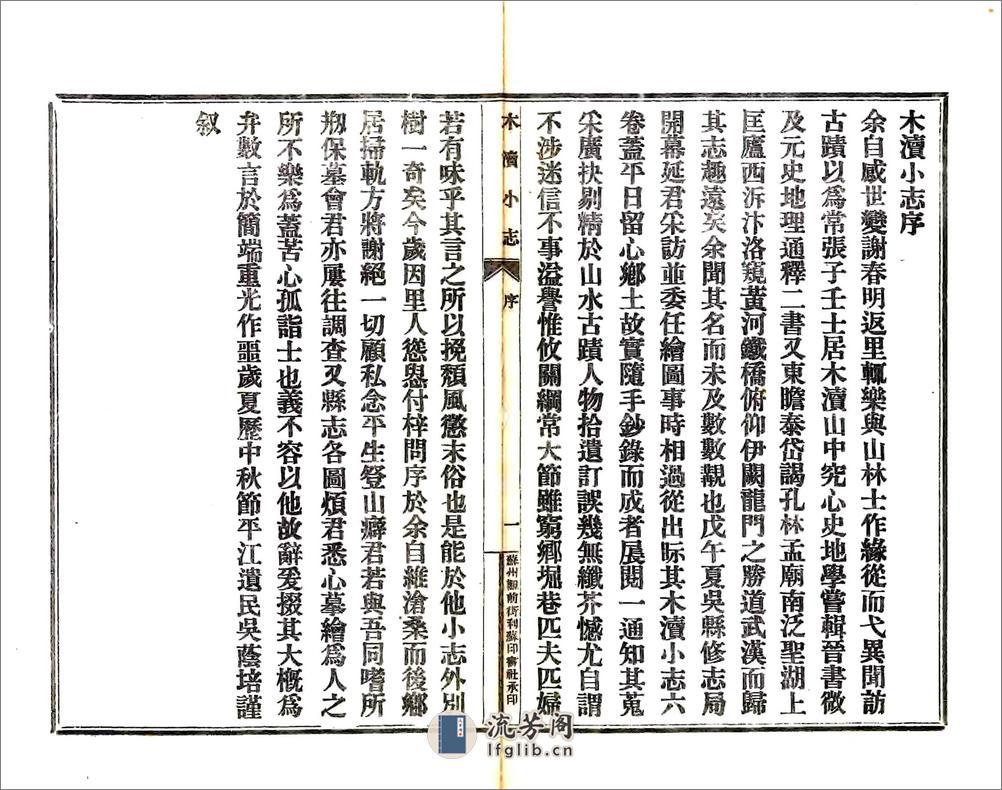 木瀆小志序
余自感世變謝春明返里輒樂與山林士作緣從而弋異聞訪
古蹟以爲常張子壬士居木瀆山中究心史地學嘗輯晉書微
及元史地理通釋二書又東瞻泰岱謁孔林孟廟南泛聖湖上
匡廬西泝汴洛窺黃河鐵橋俯仰伊闕龍門之勝道武漢而歸
其志趣遠矣余聞其名而未及數數覯也戊午夏吳縣修志局
開幕延君采訪並委任繪圖事時相過從出眎其木瀆小志六
卷蓋平日留心鄉土故實隨手鈔錄而成者展閱一通知其蒐
采廣抉剔精於山水古蹟人物拾遺訂誤幾無纖芥憾尤自謂
不涉迷信不事溢譽惟攸關綱常大節雖窮鄉堀巷匹夫匹婦
木瀆小志
序
一
蘇州觀前街利蘇印書社承印
若有味乎其言之所以挽頹風懲末俗也是能於他小志外別
樹一奇矣今歲因里人慫恿付梓問序於余自維滄桑而後鄉
居掃軌方將謝絕一切顧私念平生登山癖君若與吾同嗜所
刱保墓會君亦屢往調查又縣志各圖煩君悉心摹繪爲人之
所不樂爲蓋苦心孤詣士也義不容以他故辭爰掇其大概爲
弁數言於簡端重光作噩歲夏歷中秋節平江遺民吳蔭培謹
叙
流芳阁
lfglib.cn